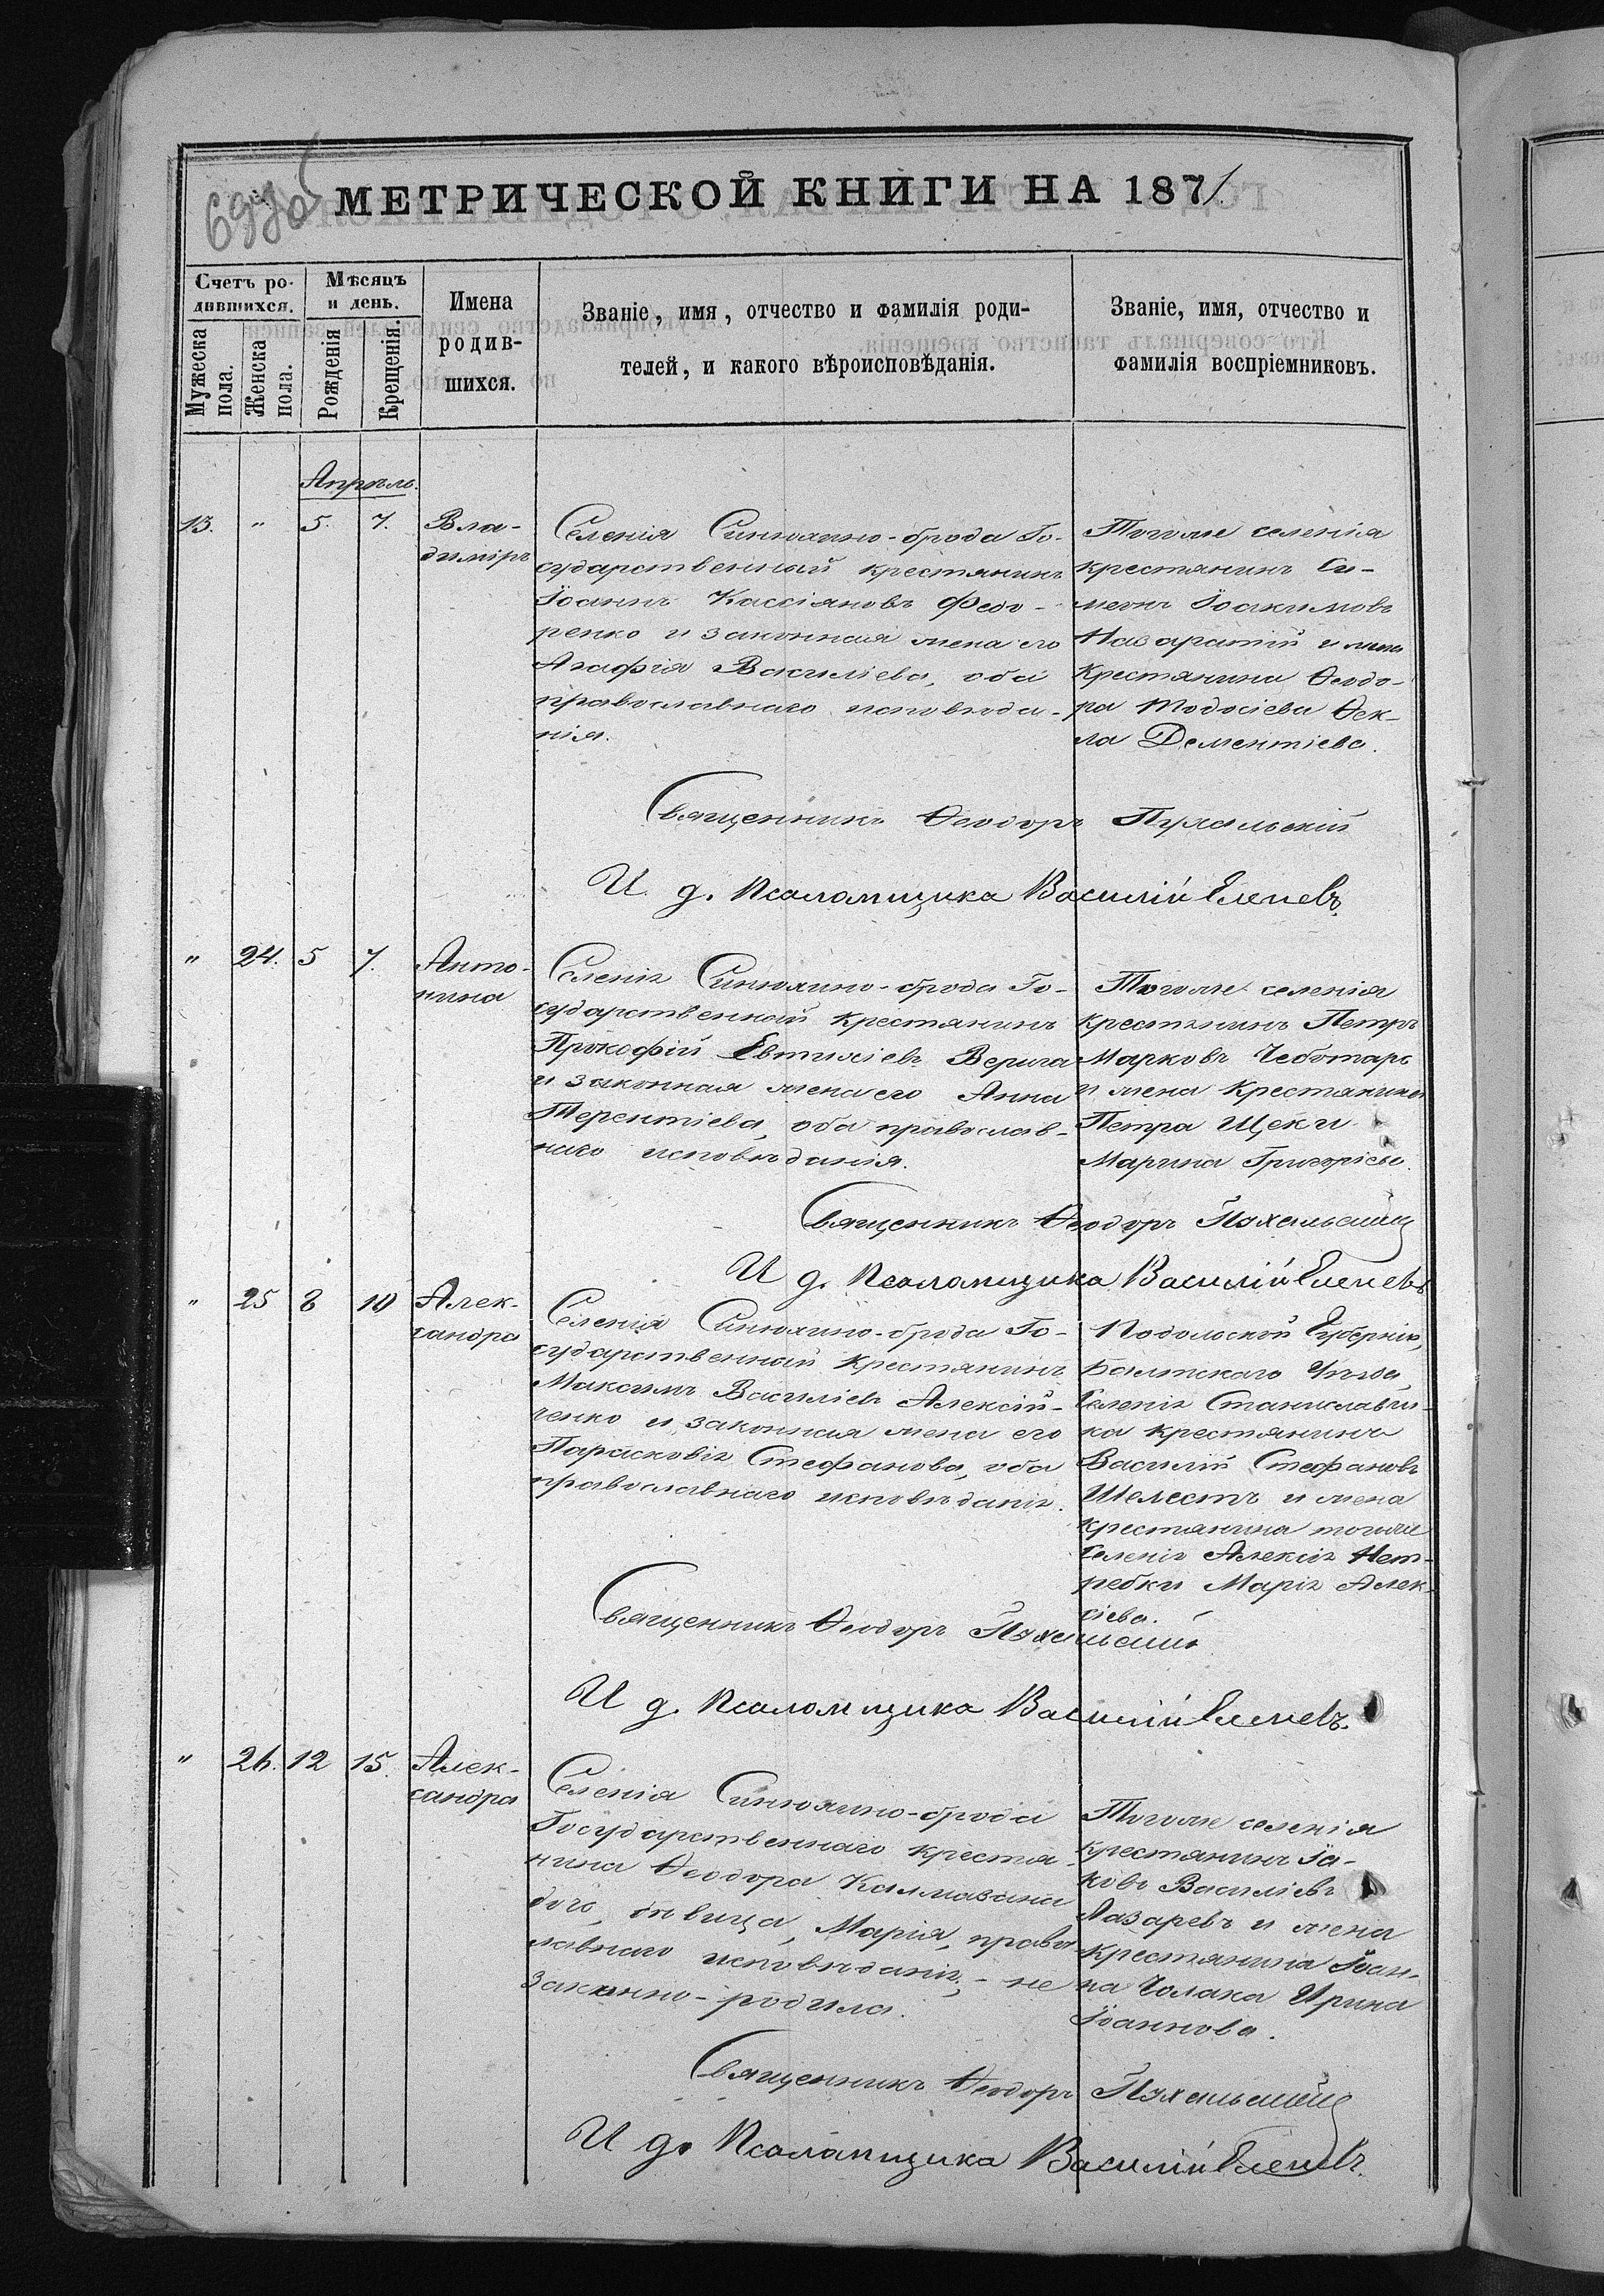 МЕТРИЧЕСКОЙ КНИГИ НА 1871.
Счетъ ро-
дившихся.
Мужеска пола.
Женска пола.
Мѣсяцъ
и день.
Рожденія
Крещенія.
Имена
родив-
шихся.
Званіе, имя, отчество и фамилія роди-
телей, и какого вѣроисповѣданія.
Званіе, имя, отчество и
фамилія воспріемниковъ.
Апрѣль.
13. " 5. 7.
Вла-
диміръ
Селенія Синюхино-брода Го-
сударственный крестянинъ
Іоаннъ Кассіяновъ Федо-
ренко и законная жена его
Агафія Василіева, оба
православнаго исповѣда-
нія.
Тогоже селенія
крестянинъ Си-
меонъ Іоакимовъ
и жена
крестянина Ѳеодо-
ра Тодосіева Ѳек-
ла Дементіева.
Священникъ Ѳеодоръ Пухальскій
И. д. Псаломщика Василій
" 24. 5 7.
Анто-
нина
Селенія Синюхино-брода Го-
сударственный крестянинъ
Прокофій Евтихіевъ Верига
и законная жена его Анна
Терентіева, оба православ-
наго исповѣданія.
Тогоже селенія
крестянинъ Петръ
Марковъ Чеботарь
и жена крестянина
Петра Щеки
Марина Григоріева.
Священникъ Ѳеодоръ Пухальскій
И д. Псаломщика Василій
" 25 8 10
Алек-
сандра
Селенія Синюхино-брода Го-
сударственный крестянинъ
Максимъ Василіевъ Алексій-
ченко и законная жена его
Параскевія Стефанова, оба
православнаго исповѣданія.
Подольской Губерніи,
Балтскаго Уѣзда,
Селенія Станиславчи-
ка крестянинъ
Василій Стефановъ
Шелестъ и жена
крестянина тогоже
Селенія Алексія Нет-
ребки Марія Алек-
сіева.
Священникъ Ѳеодоръ Пухальскій
И д. Псаломщика Василій
" 26. 12 15.
Алек-
сандра
Селенія Синюхино-брода
Государственнаго крестя-
нина Ѳеодора
дочь, дѣвица, Марія, право-
лавнаго исповѣданія, - не
законно-родила.
Тогоже селенія
крестянинъ Іа-
ковъ Василіевъ
Лазаревъ и жена
крестянина Іоан-
на Чолака Ирина
Іоаннова.
Священникъ Ѳеодоръ Пухальскій
И д. Псаломщика Василій